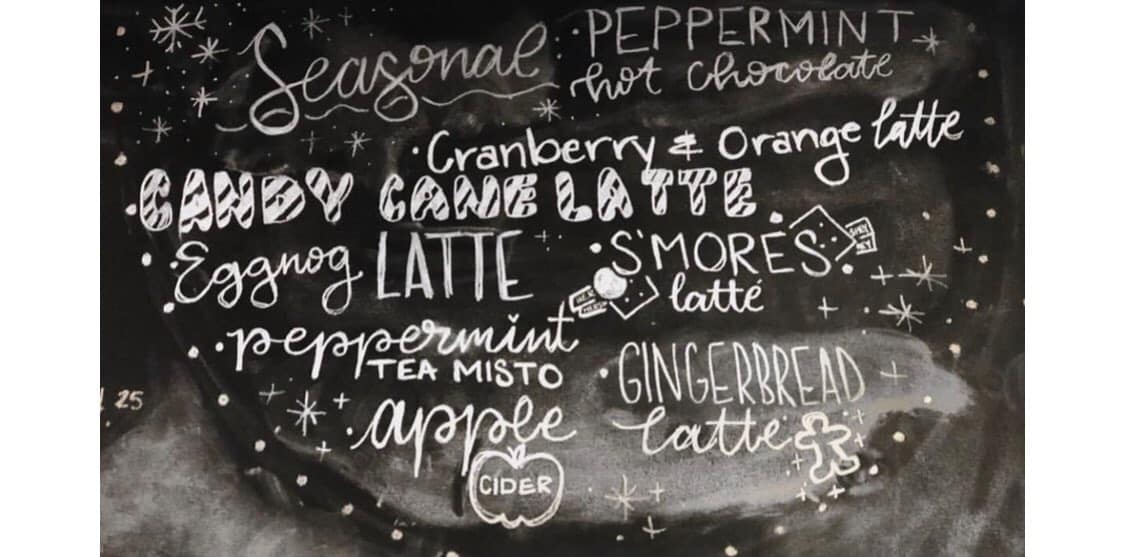 Seasonal
· PEPPERMINT
hot chocolate
· Cranberry & Orange latte
· CANDY CANE LATTE
· Eggnog LATTE
· S'MORES
latté
· peppermint
TEA MISTO
· GINGERBREAD
latte
25
· apple
CIDER